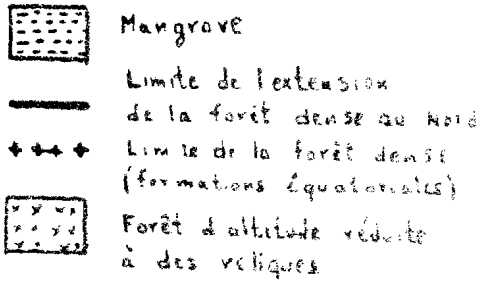 Mangrove
Limite de l'extension
de la forêt dense au Nord
Limite de la forêt dense
(formations équatoriales)
Forêt d'altitude réduite
à des reliques